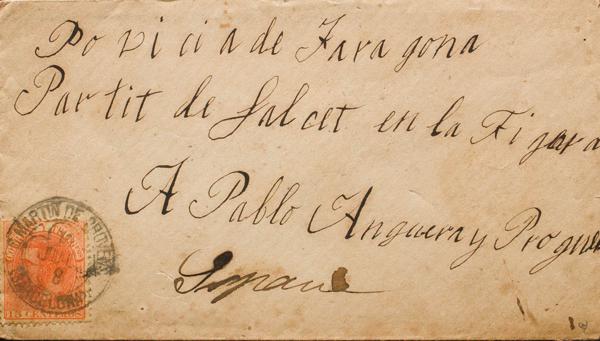 Povicia de Taragona
Partit de Falcet en la Figara
A Pablo Anguera y Progue
Espane
MARTIN DE
8
BARCELONA
15 CENTIMOS